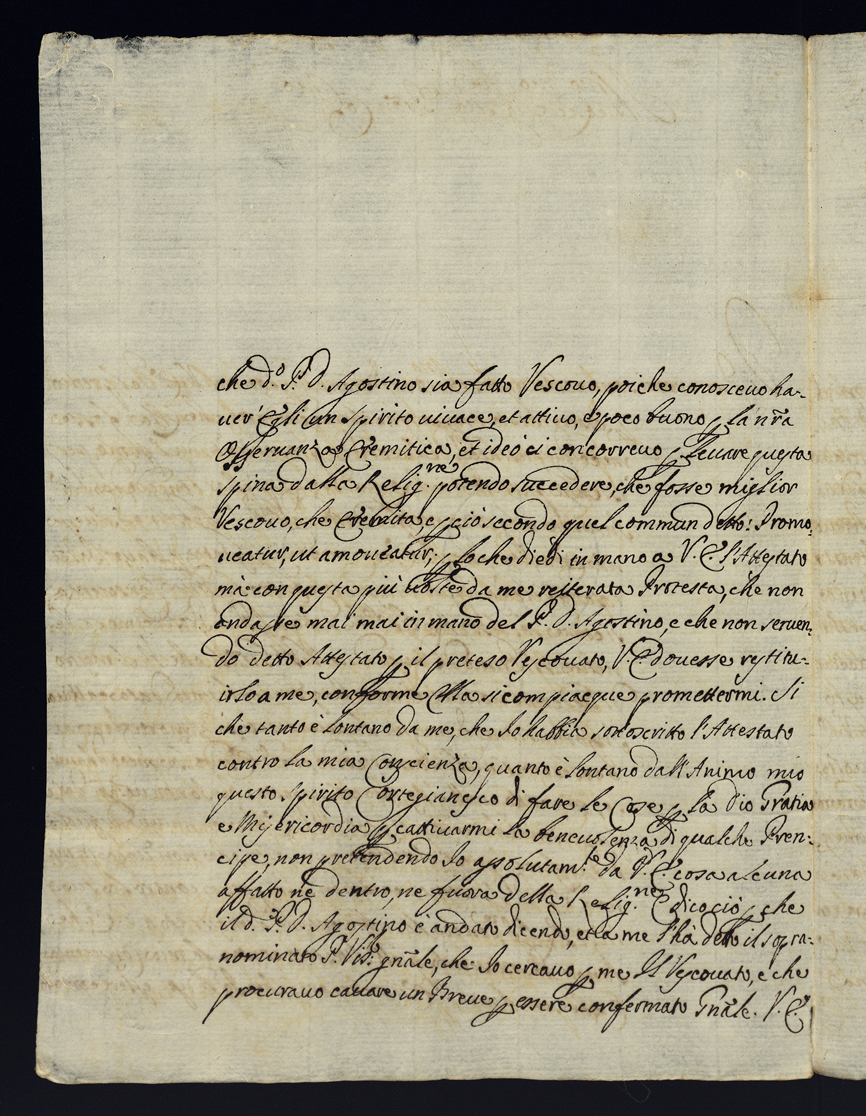 che d.º P. D. Agostino sia fatto Vescovo, poiche conoscevo ha-
ver' Egli un spirito vivace, et attivo, e poco buono p la nra
Osservanza Eremitica, et ideò ci concorrevo p levare questa
spina dalla Relig.ne potendo succedere, che fosse miglior
Vescovo, che Eremita, e p ciò secondo quel commun detto: Promo-
veatur, ut amoveatur; p lo che diedi in mano a V. E. l'Attestato
mà con questa più volte da me reiterata Protesta, che non
andasse mai mai in mano del P. D. Agostino, e che non serven-
do detto Attestato p il preteso Vescovato, V. E. dovesse restitu-
irlo a me, conforme Ella si compiacque promettermi. Si
che tanto è lontano da me, che Io habbia sottoscritto l'Attestato
contro la mia Coscienza, quanto è lontano dall'Animo mio
questo spirito Cortegianesco di fare le Cose p la Dio Gratia
e Misericordia p cattivarmi la benevolenza di qualche Pren-
cipe, non pretendendo Io assolutam.te da V. E. cosa alcuna
affatto ne dentro, ne fuora della Relig.ne E dico ciò p che
il d.º P. D. Agostino è andato dicendo, et a me l'hà detto il sopra-
nominato P. Vis.re gnãle, che Io cercavo p me Il Vescovato, e che
procuravo cavare un Breve p essere confermato Gnãle. V. E.